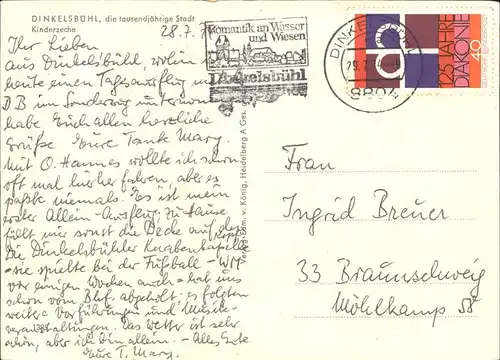 DINKELSBÜHL, die tausendjährige Stadt
Kinderzeche
28.7.
Ihr Lieben
aus Dinkelsbühl, wohin
heute einen Tagesausflug
DB im Sonderzug
habe Euch allen herzliche
Grüße Eure Tante Marg.
Mit O. Hannes wollte ich schon
oft mal hierher fahren, aber es
paßte niemals. Es ist mein
erster Allein-Ausflug; zu Hause
fällt mir sonst die Decke auf den Kopf.
Die Dinkelsbühler Knabenkapelle
- sie spielte bei der Fußball-WM
vor einigen Wochen auch - hat uns
schon vom Bhf. abgeholt; es folgten
weitere Vorführungen und Musik-
veranstaltungen. Das Wetter ist sehr
schön, aber ich bin allein. - Alles Gute
Eure T. Marg.
Romantik an Wasser
und Wiesen
Dinkelsbühl
DINKELSBÜHL
8804
125 JAHRE
DIAKONIE
40
DEUTSCHE BUNDESPOST
v. König, Heidelberg A Ges.
Frau
Ingrid Breuer
33 Braunschweig
Möhlkamp 58